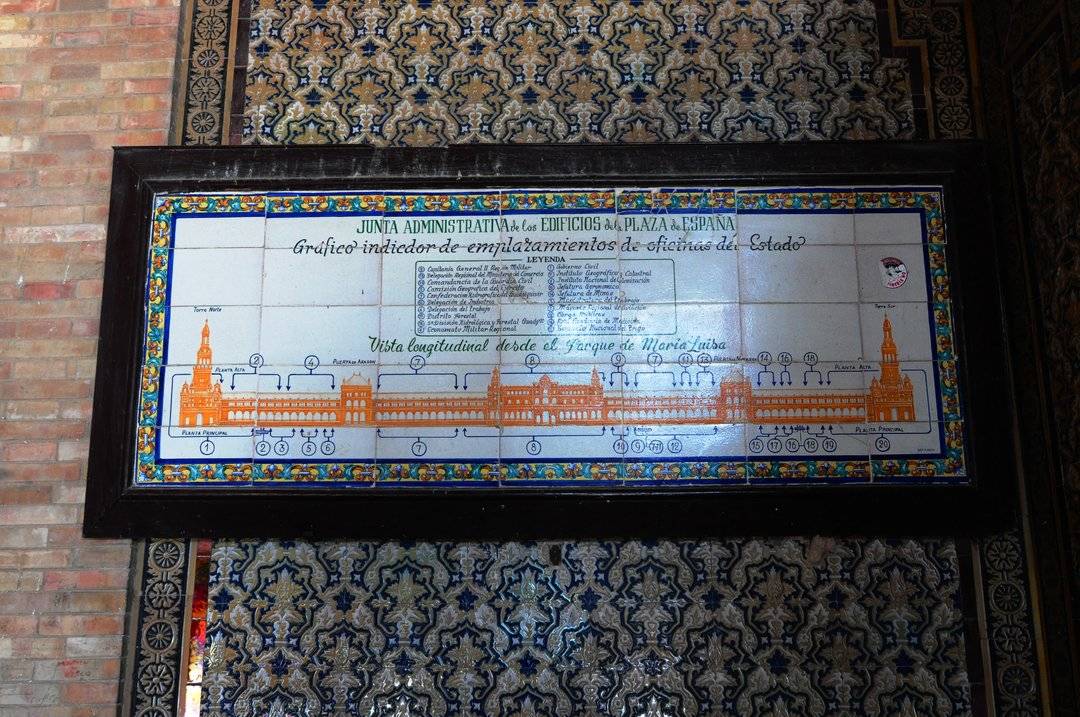 JUNTA ADMINISTRATIVA de los EDIFICIOS de la PLAZA de ESPAÑA
Gráfico indicdor de emplazamientos de oficinas del Estado
LEYENDA
Capitanía General II Región Militar
Delegación Regional del Ministerio de Comercio
Comandancia de la Guardia Civil
Comisión Geográfica del Ejército
Confederación Hidrográfica del Guadalquivir
Delegación de Industria
Delegación del Trabajo
Distrito Forestal
División Hidrológica y Forestal Guadqvir
Economato Militar Regional
Gobierno Civil
Instituto Geográfico y Catastral
Instituto Nacional de Colonización
Jefatura Agronómica
Jefatura de Minas
Magistratura del Trabajo
Servicio Nacional del Trigo
Vista longitudinal desde el Parque de María Luisa
Torre Norte
Torre Sur
PLANTA ALTA
2
4
PUERTA DE ARAGON
7
8
9
7
11
13
PUERTA NAVARRA
14
16
18
PLANTA ALTA
PLANTA PRINCIPAL
PLANTA PRINCIPAL
1
2
3
5
6
7
8
10
9
12
15
17
16
18
19
20